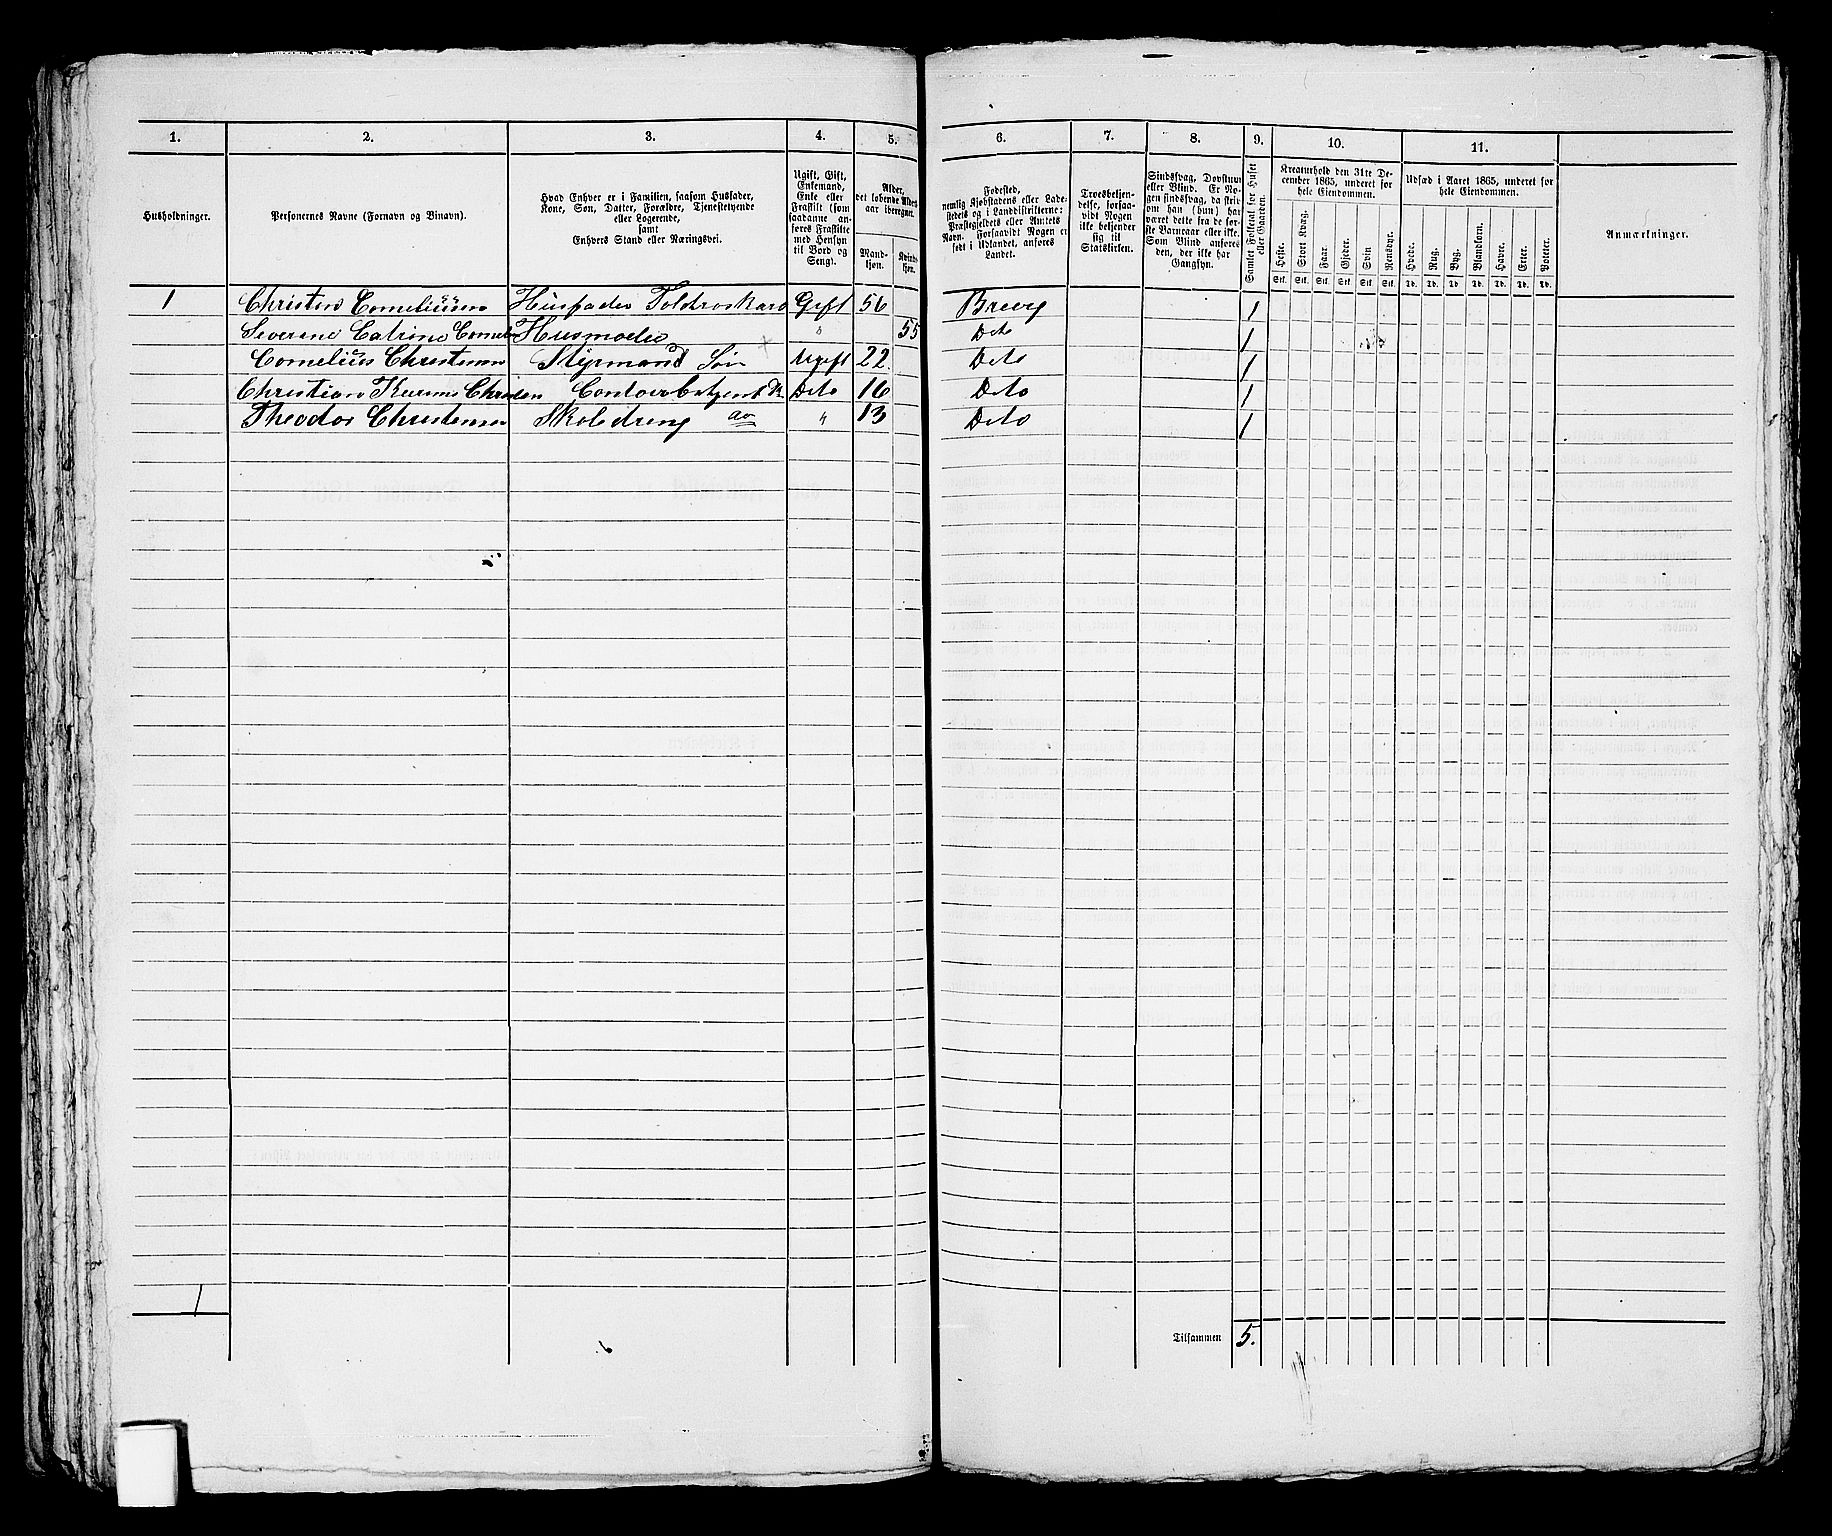 1. 2. 3. 4. 5. 6. 7. 8. 9. 10. 11.
Husholdninger.
Personernes Navne (Fornavn og Binavn).
Hvad Enhver er i Familien, saasom Husfader,
Kone, Søn, Datter, Forældre, Tjenestetyende
eller Logerende,
samt
Enhvers Stand eller Næringsvei.
Ugift, Gift,
Enkemand,
Enke eller
Fraskilt (som
saadanne an-
føres Fraskilte
med Hensyn
til Bord og
Seng).
Alder,
det løbende Alders-
aar iberegnet.
Mand-
kjøn.
Kvind-
kjøn.
Fødested,
nemlig Kjøbstadens eller Lade-
stedets og i Landdistrikterne:
Præstegjeldets eller Amtets
Navn. Forsaavidt Nogen er
født i Udlandet, anføres
Landet.
Troesbekjen-
delse, forsaa-
vidt Nogen
ikke bekjender
sig til
Statskirken.
Sindssvag, Døvstum
eller Blind. Er No-
gen sindssvag, da skri-
ves om han (hun) har
været dette fra de før-
ste Barneaar eller ikke.
Som Blind anføres
den, der ikke har
Gangsyn.
Samlet Folketal for Huset
eller Gaarden.
Kreaturhold den 31te De-
cember 1865, underet for
hele Eiendommen.
Heste. Stort Kvæg. Faar. Gjeder. Svin Rensdyr.
Stk. Stk. Stk. Stk Stk. Stk.
Udsæd i Aaret 1865, underet for
hele Eiendommen.
Hvede. Rug. Byg. Blandkorn. Havre. Erter. Poteter.
Td. Td. Td Td. Td. Td. Td.
Anmærkninger.
1 Christen Corneliussen Husfader Toldroskarl Gift 56 Brevig 1
Severene Catrine Cornel Husmoder " 55 Deto 1
Cornelius Christensen Styrmand Søn Ugift 22. Deto 1
Christian Christen Contoerbetjent Deto 16 Deto 1
Theodor Christensen Skoledreng do " 13 Deto 1
1
Tilsammen 5.